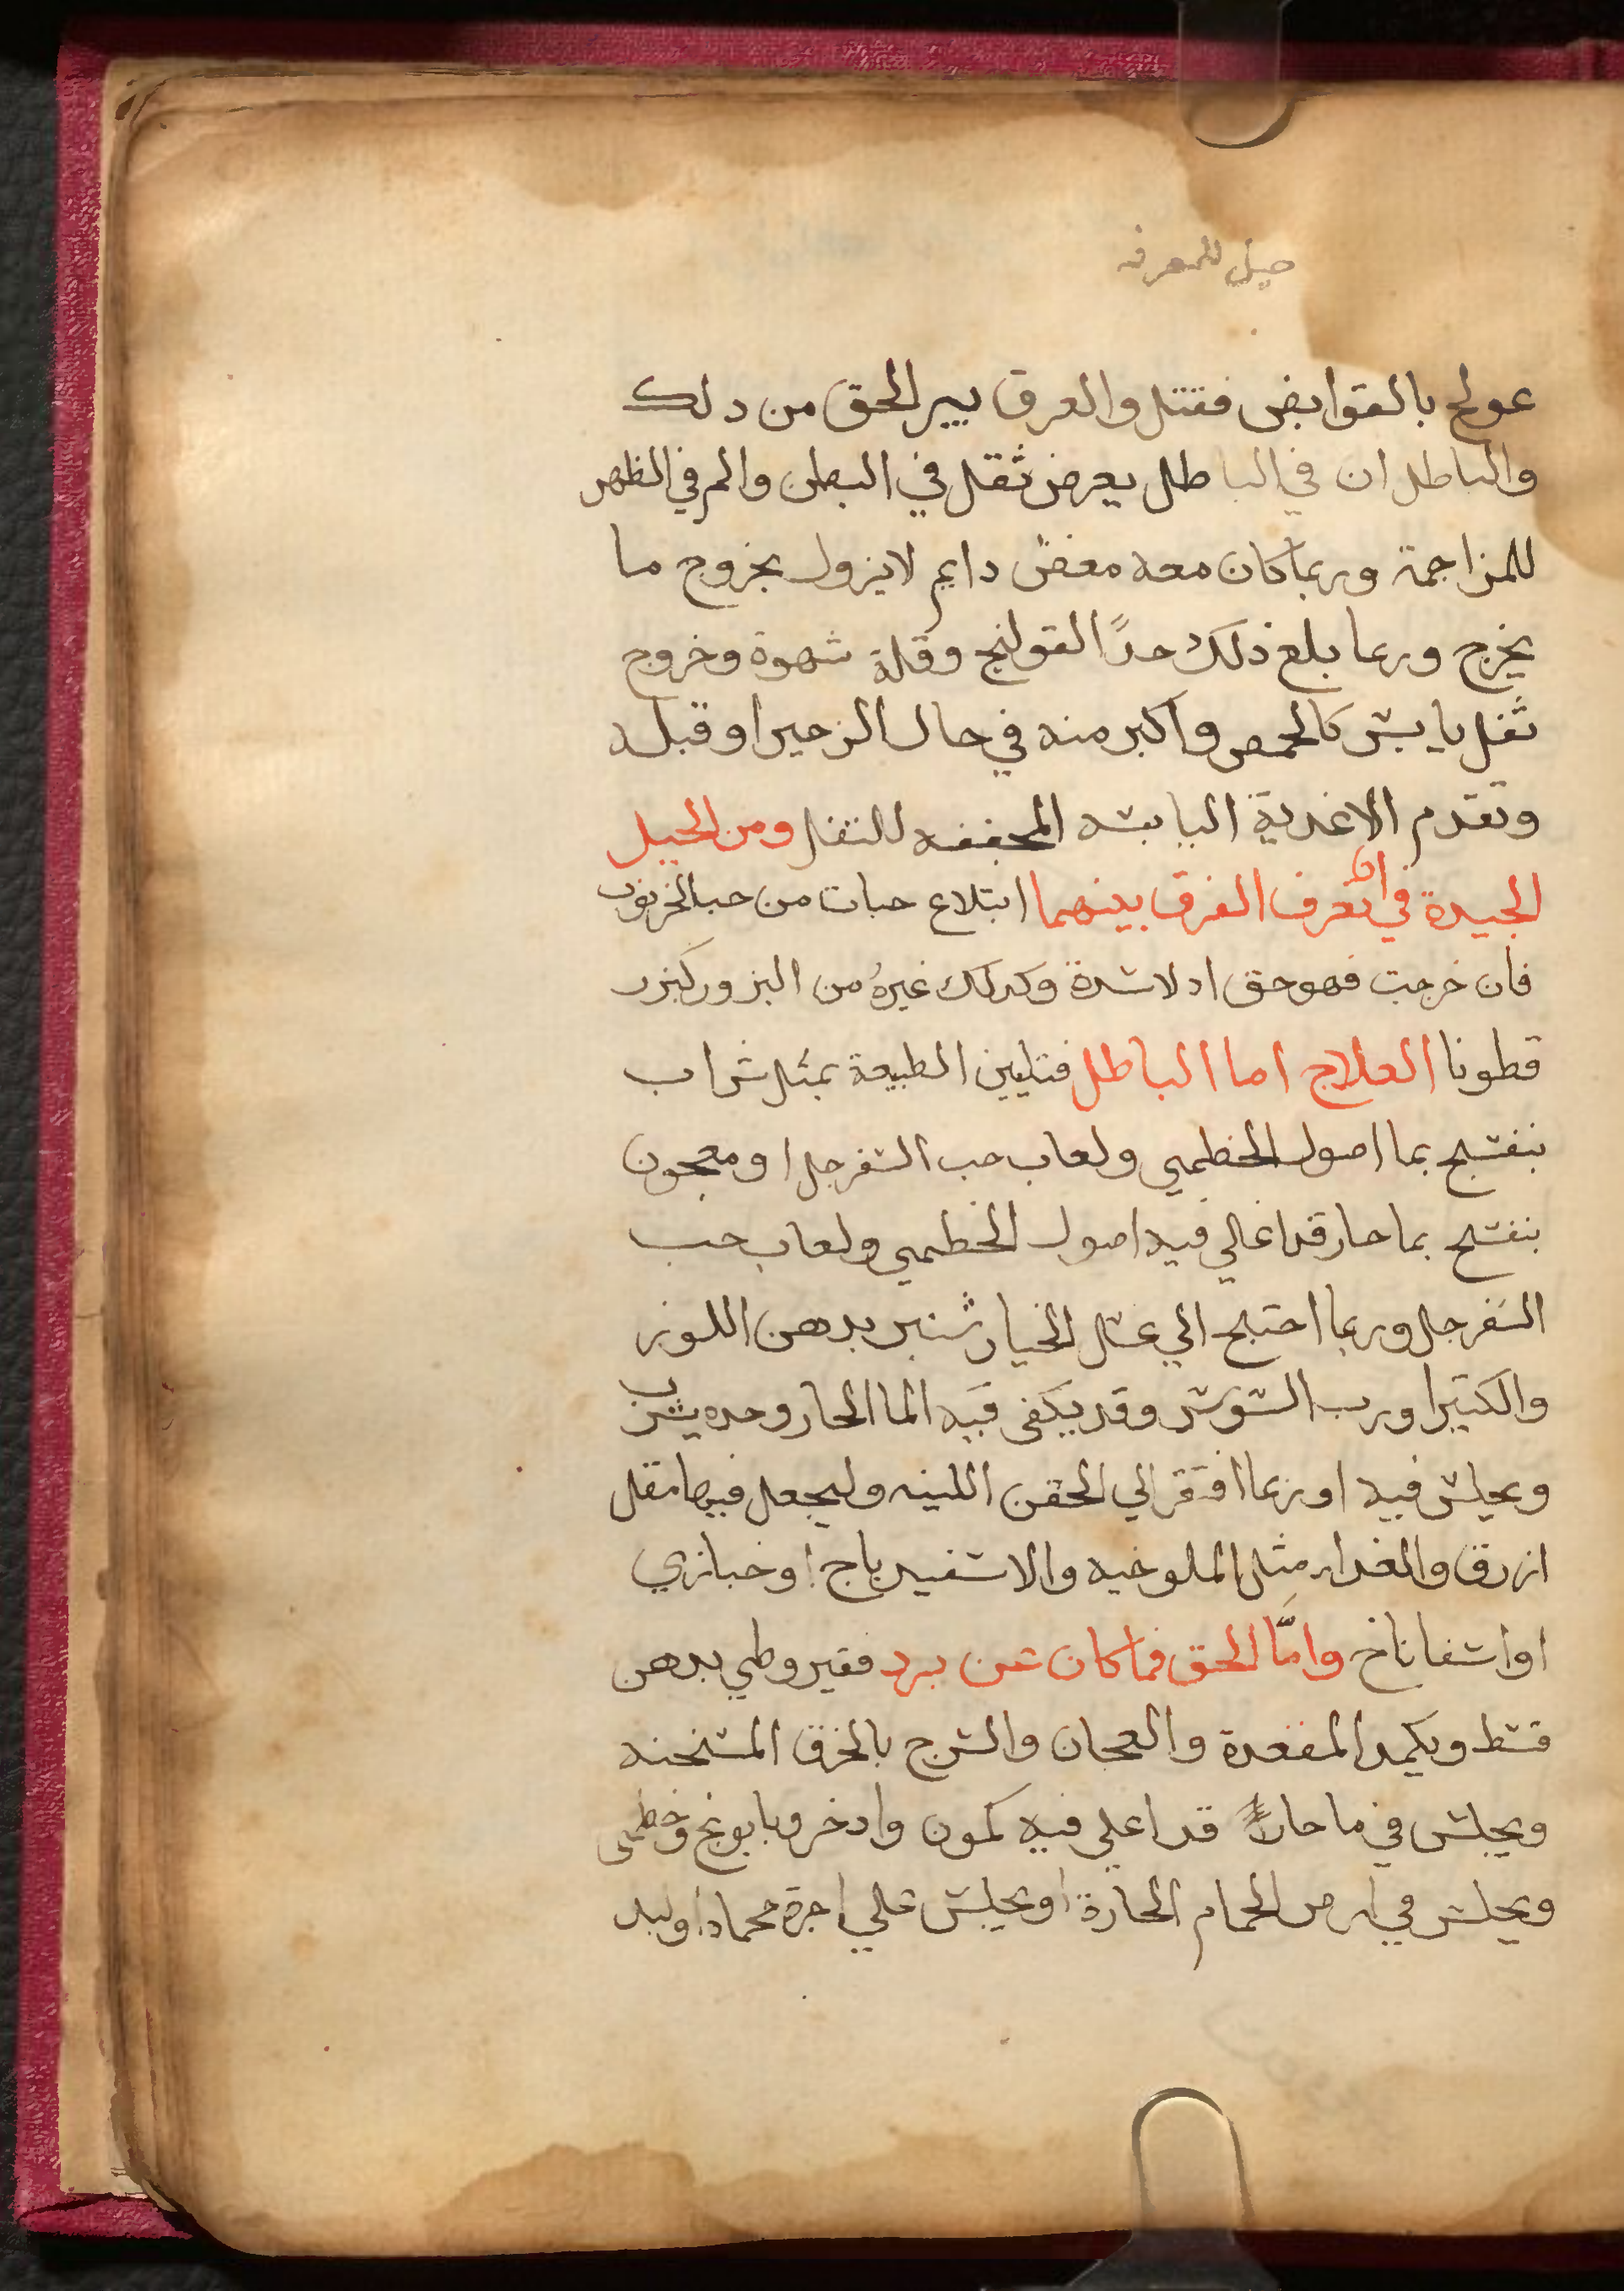 حيل للمعرفه
عولج بالقوابض فقتل والعرق بين الحق من دلك
والباطل ان في الباطل يعرض ثقل في البطن والم في الظهر
للمزاجمة وربما كان معه مغض دايم لا يزول بخروج ما
يخرج وربما بلغ ذلك حدًا القولنج وقلة شهوة وخروج
ثفل يابش كالحمص واكبر منه في حال الزحير او قبله
وتقدم الاغدية اليابشه المجففه للثفل ومن الحيل
الجيدة في ان تعرف الفرق بينهما ابتلاع حبات من حب الخرنوب
فان خرجت فهو حق اد لا شدة وكدلك غيرهُ من البزور كبزر
قطونا العلاج اما الباطل فتليين الطبيعة بمثل شراب
بنفشج بما اصول الخطمي ولعاب حب الشفرجل او معجون
بنفشج بما حار قد اغلي فيه اصول الخطمي ولعاب حب
الشفرجل وربما احتيج الي عشل الخيار شنبر بدهن اللوز
والكتيرا ورب الشوش وقد يكفي فيه الما الحار وحده يشرب
ويجلش فيه او ربما افتقر الي الحقن اللينه وليجعل فيها مقل
ازرق والغدا مثل الملوخيه والاشفيدباج او خبازي
او اشفاناخ وامَّا الحق فما كان عن برد فقيروطي بدهن
قشط ويكمد المقعدة والعجان والشرج بالخرق المشخنه
ويجلش في ما حار قد اغلي فيه كمون وادخر وبابونج وخطمي
ويجلش في ارض الحمام الحارة او يجلش علي اجرة محماه او لبد